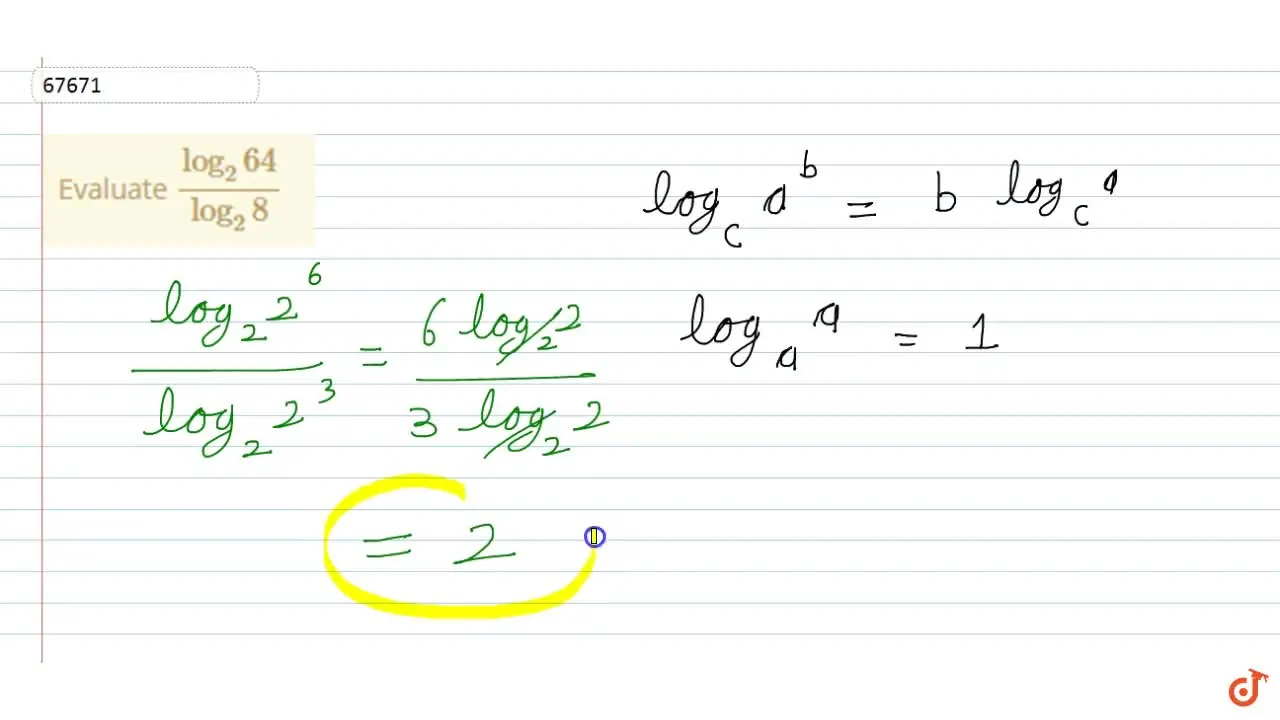 67671
Evaluate log₂ 64 / log₂ 8
log_c a^b = b log_c a
log₂ 2⁶ / log₂ 2³ = 6 log₂ 2 / 3 log₂ 2
log_a a = 1
= 2